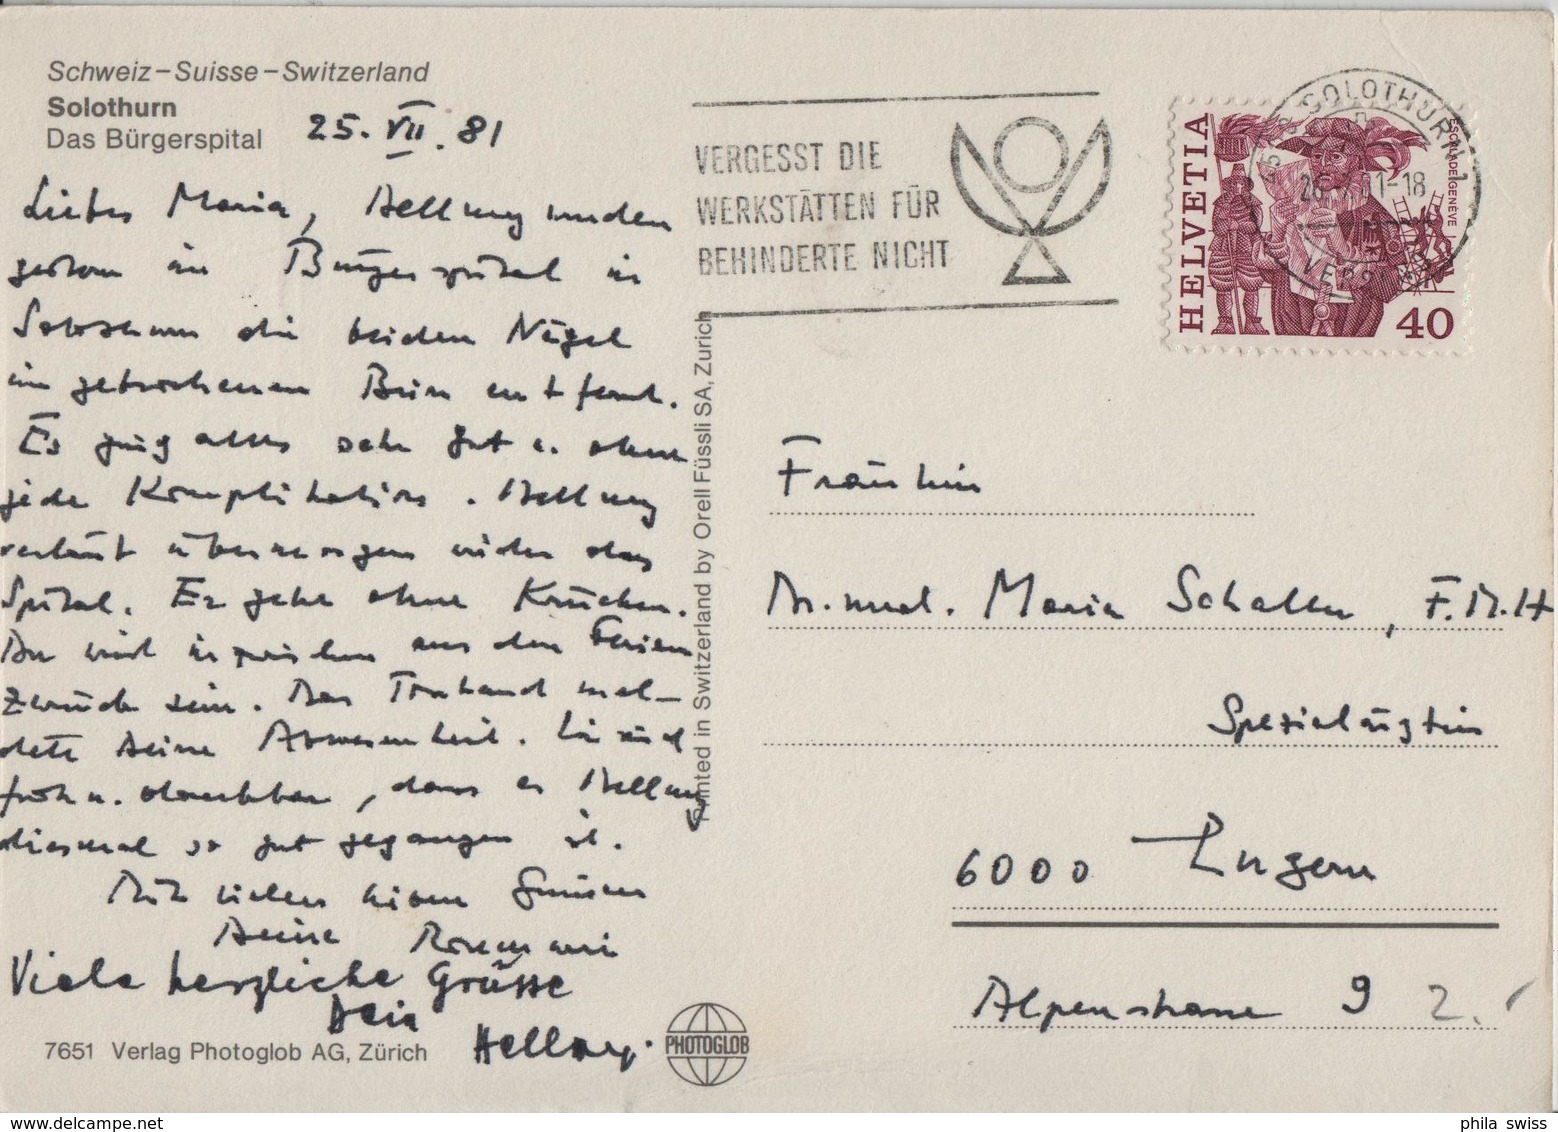 Schweiz–Suisse–Switzerland
Solothurn
Das Bürgerspital
25. VII. 81
Liebes Maria, Hellmy wurden
gestern im Bürgerspital in
Solothurn die beiden Nägel
im gebrochenen Bein entfernt.
Es ging alles sehr gut u. ohne
jede Komplikation. Hellmy
verlässt übermorgen wieder das
Spital. Er geht ohne Krücken.
Du wirst inzwischen aus den Ferien
zurück sein. Das Tonband mel-
dete Deine Abwesenheit. Wir sind
froh u. dankbar, dass es Hellmy
diesmal so gut gegangen ist.
Mit vielen lieben Grüssen
Deine Rosemarie
Viele herzliche Grüsse
Dein
Hellmy.
7651 Verlag Photoglob AG, Zürich
PHOTOGLOB
Printed in Switzerland by Orell Füssli SA, Zurich
VERGESST DIE
WERKSTÄTTEN FÜR
BEHINDERTE NICHT
SOLOTHURN 1
-18
HELVETIA
ESCALADE GENÈVE
40
Fräulein
Dr. med. Maria Schaller, F.M.H
Spezialärztin
6000 Luzern
Alpenstrasse 9
2.
phila swiss